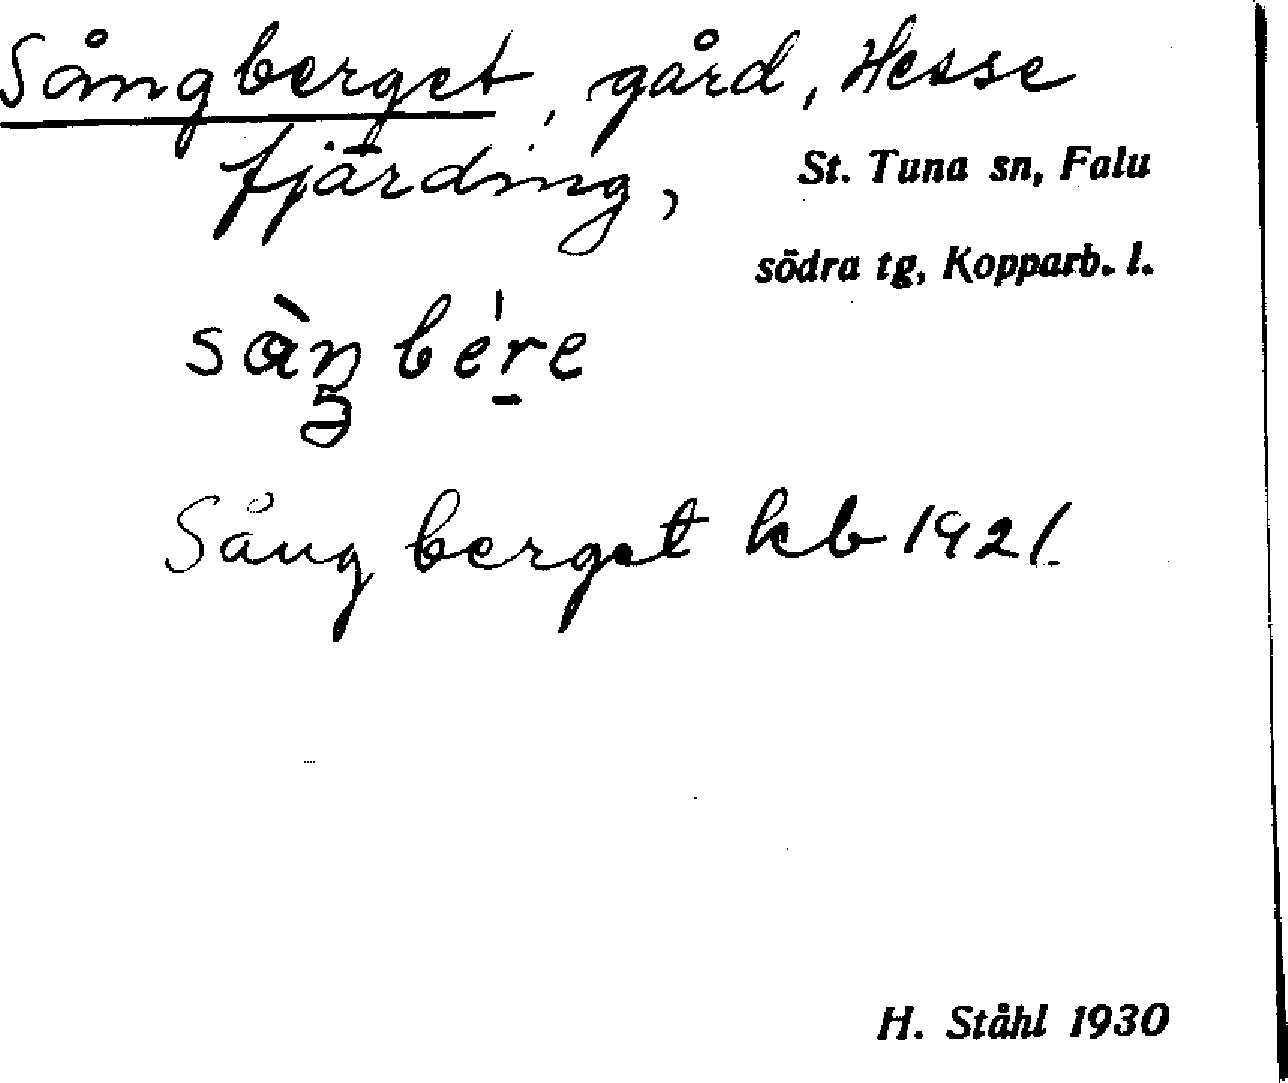 Sångberget, gård, Hesse
fjärding, St. Tuna sn, Falu
södra tg, Kopparb. l.
Sångberget kb 1921.
H. Ståhl 1930